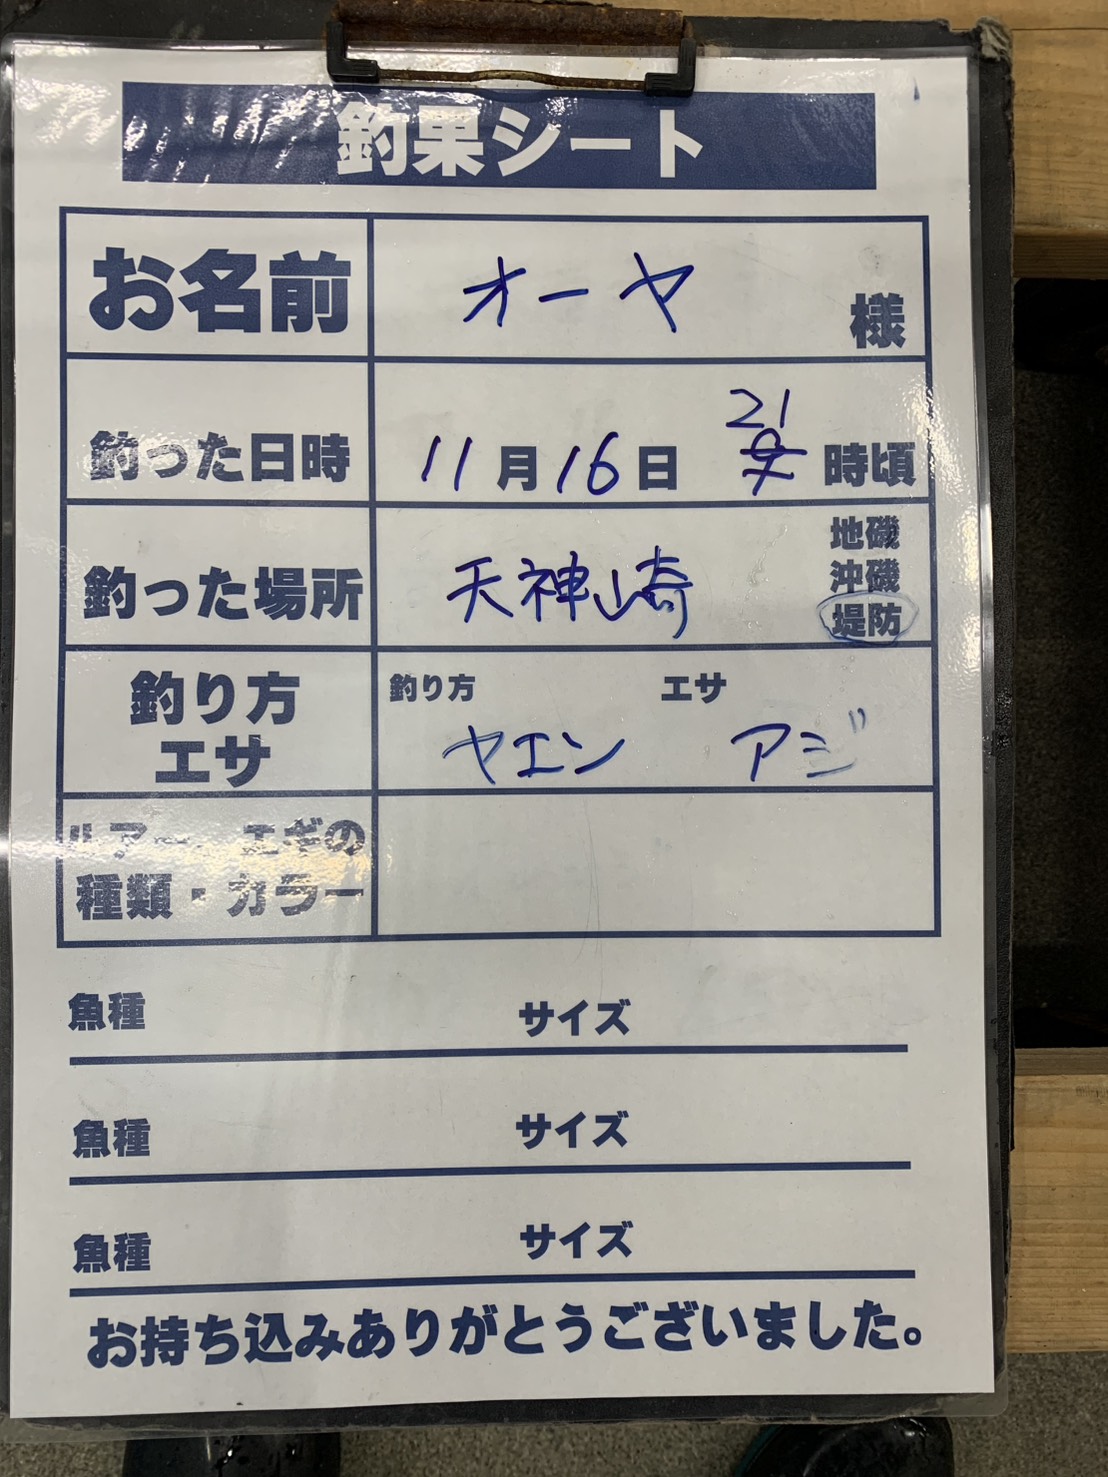 釣果シート
お名前 オーヤ 様
釣った日時 11月16日 21時頃
釣った場所 天神崎 地磯
沖磯
堤防
釣り方 エサ
釣り方
エサ
ヤエン アジ
ルアー、エギの
種類・カラー
魚種 サイズ
魚種 サイズ
魚種 サイズ
お持ち込みありがとうございました。